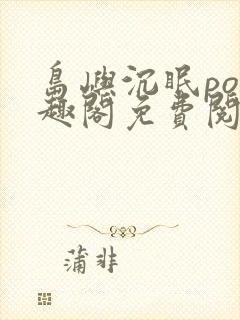 島嶼沉眠po
趣閣免費閱
蒲非